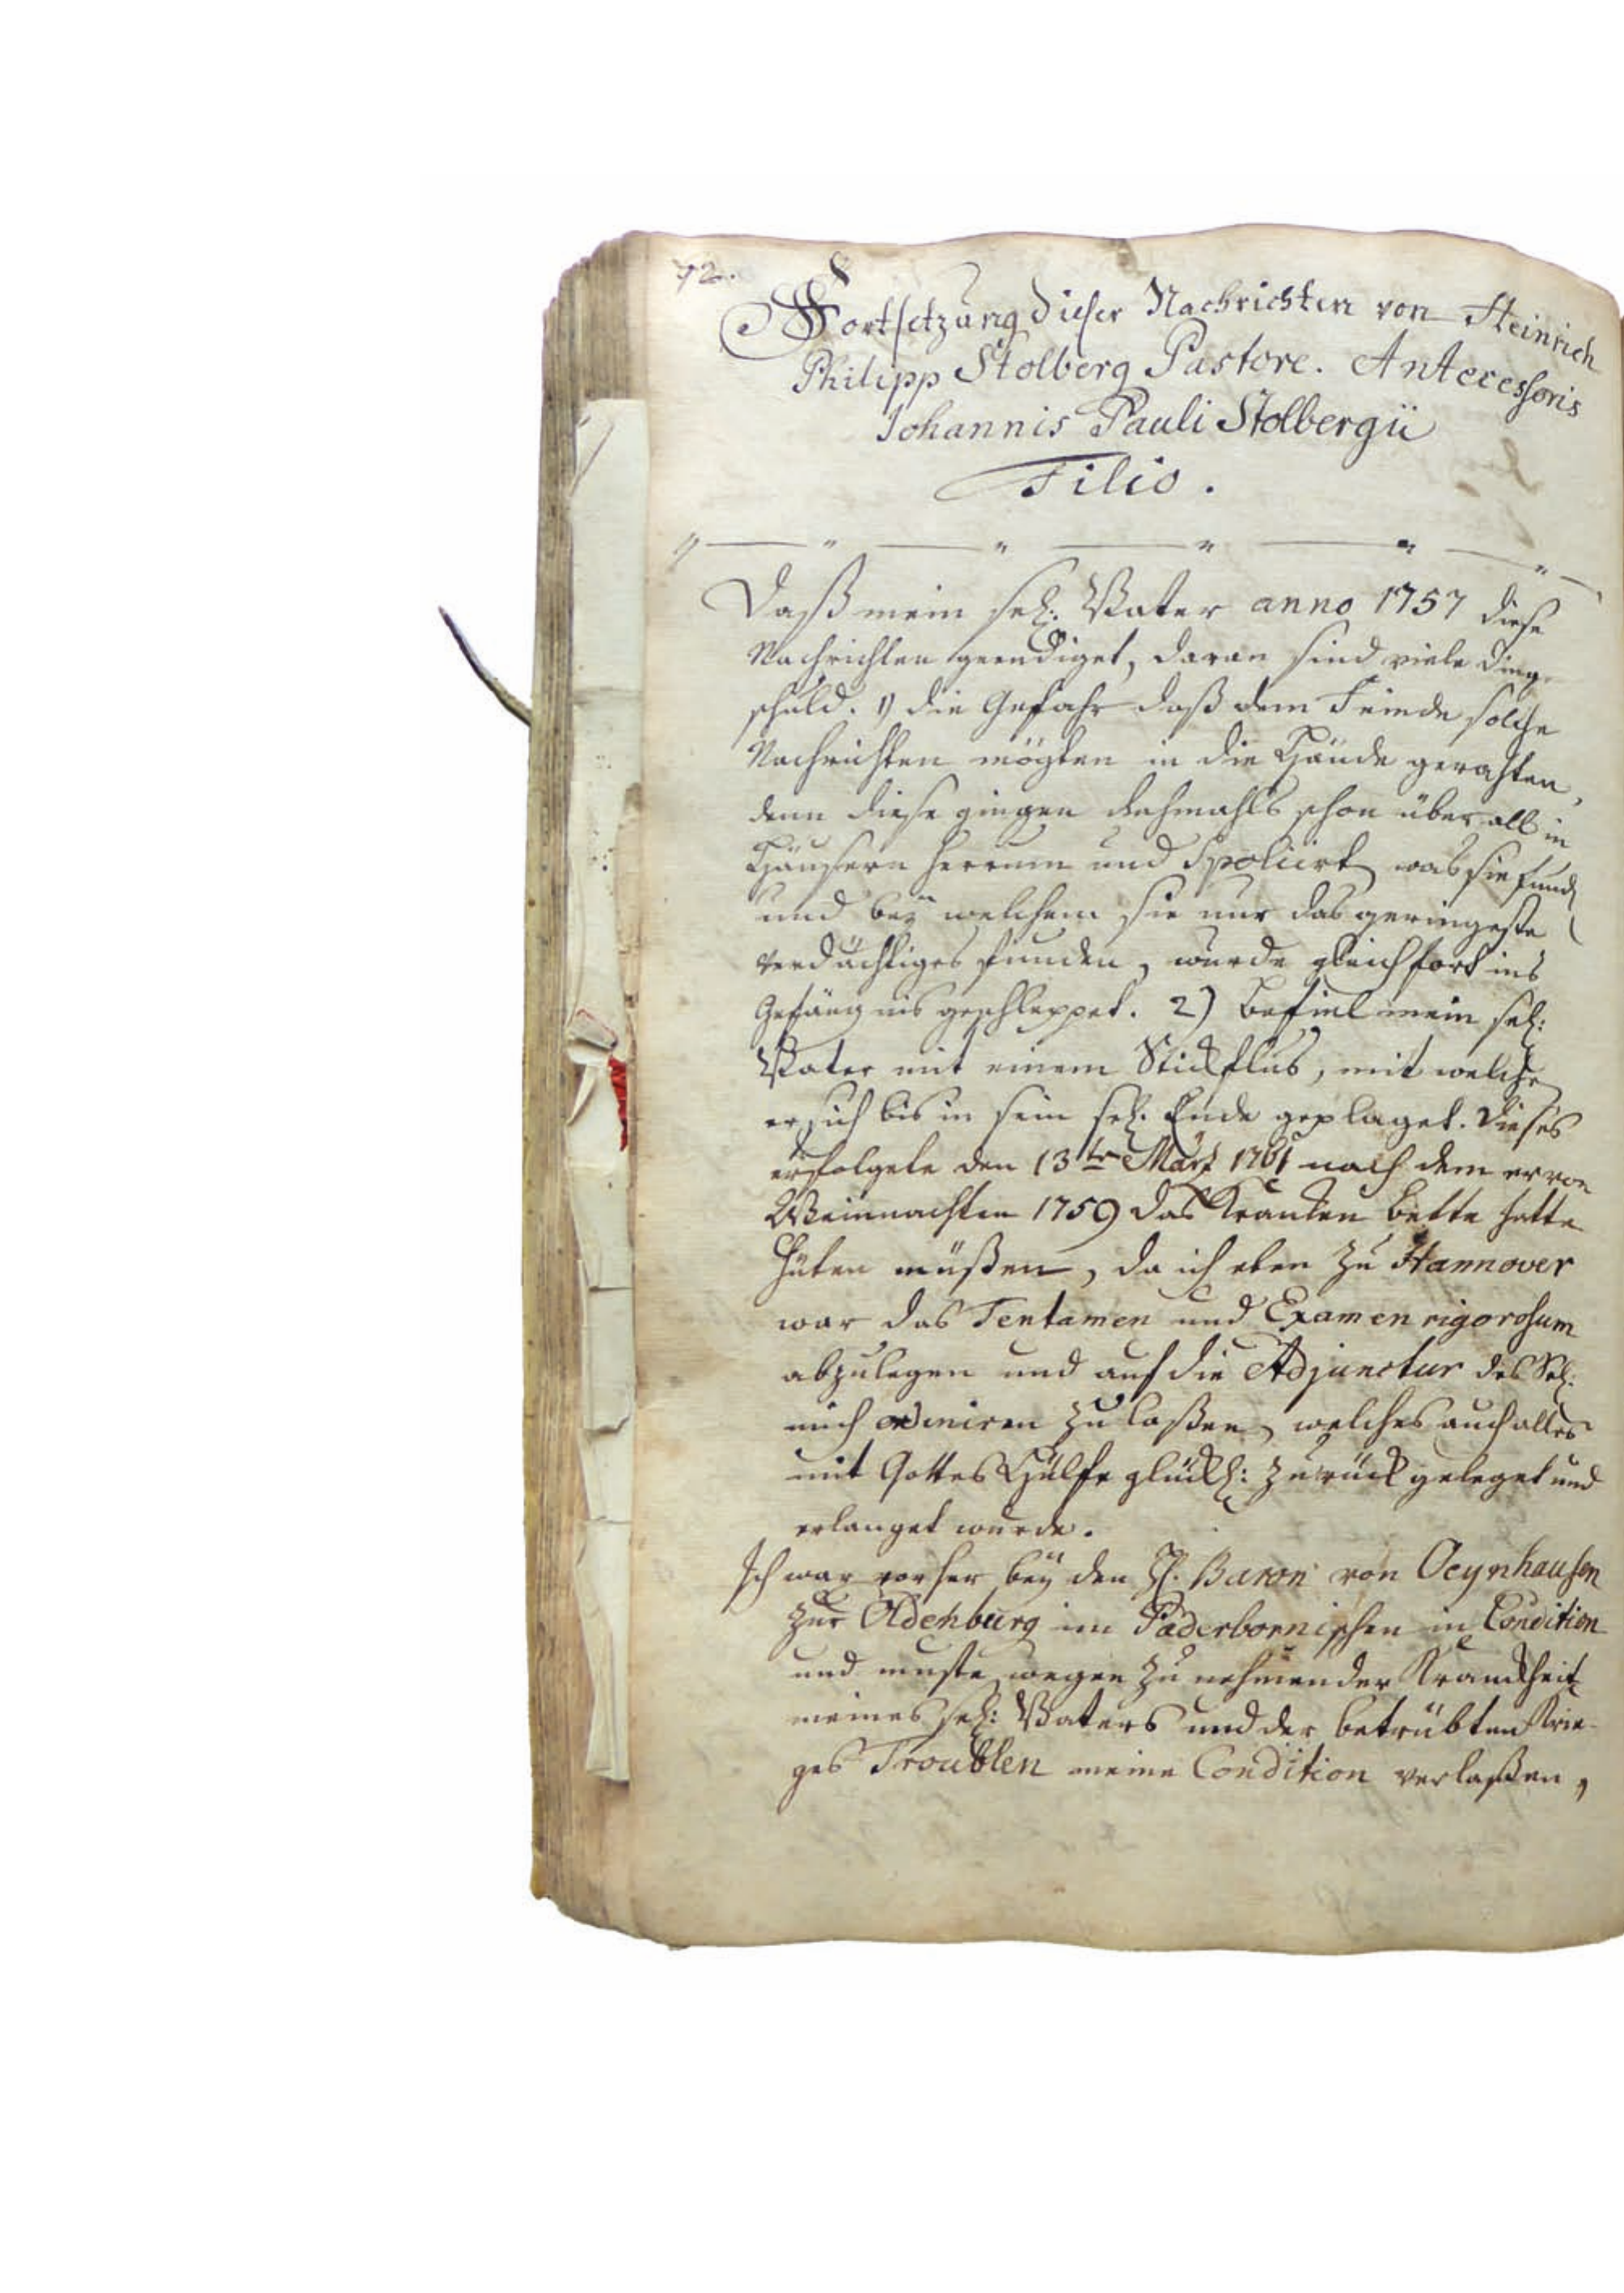 72.
Fortsetzung dieser Nachrichten von Heinrich
Philipp Stolberg Pastore. Antecessoris
Johannis Pauli Stolbergii
Filio.
Daß mein seel: Vater anno 1757 diese
Nachrichten geendiget, daran sind viele Dinge
schuld. 1) die Gefahr daß dem Feinde solche
Nachrichten mögten in die Hände gerahten,
denn diese gingen dahmahls schon über all in
Häusern herrum und Spoliirt was sie fund
und bey welchem sie nur das geringeste
verdächtiges funden, wurde gleich fort ins
Gefängnis geschleppet. 2) befiel mein sel:
Vater mit einem Stickflus, mit welche
er sich bis in sein sel. Ende geplaget. Dieses
erfolgete den 13ten Märtz 1761 nach dem er von
Weinnachten 1759 das Krancken bette hatte
hüten müßen, da ich eben zu Hannover
war das Tentamen und Examen rigorosum
abzulegen und auf die Adjunctur des Sel:
mich ordiniren zu laßen, welches auch alles
mit Gottes Hülfe glückl: zurück geleget und
erlanget wurde.
Ich war vorher bey den H. Baron von Oeynhausen
zur Oldenburg im Paderbornischen in Condition
und muste wegen zu nehmender Kranckheit
meines sel: Vaters und der betrübten Krie-
ges Troublen meine Condition verlaßen,